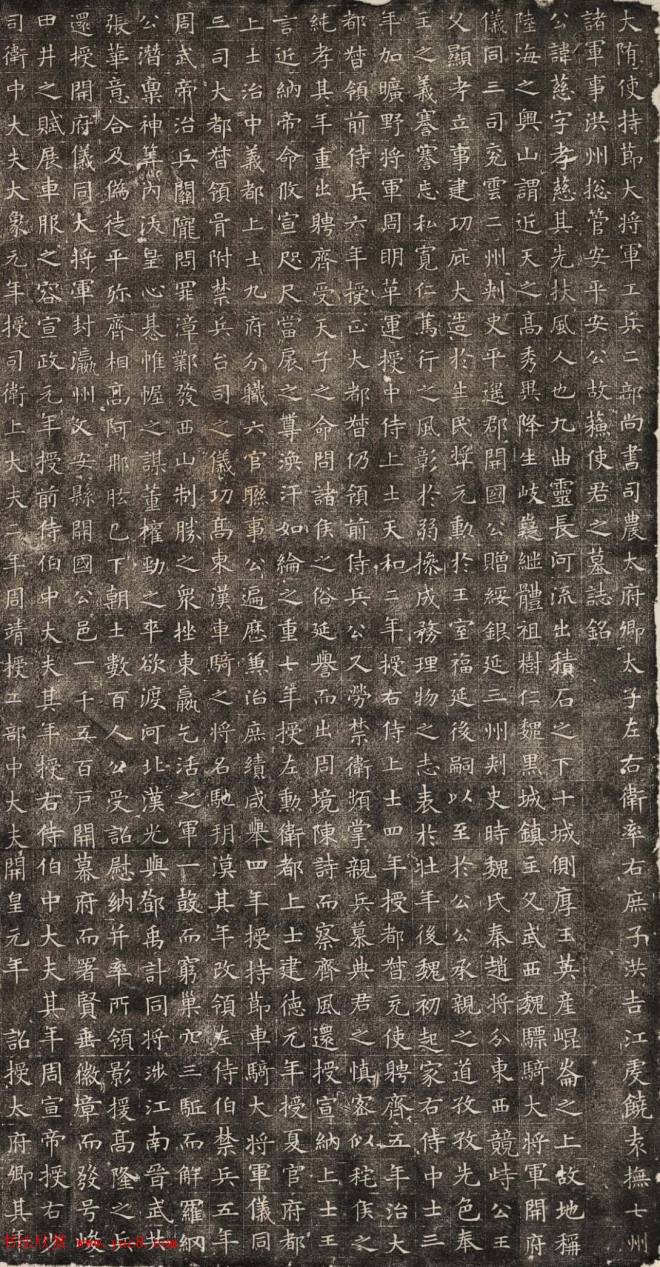 大隋使持節大將軍工兵二部尚書司農太府卿太子左右衛率右庶子洪吉江虔饒袁撫七州
諸軍事洪州捴管安平安公故蘓使君之墓誌銘
公諱慈字孝慈其先扶風人也九曲靈長河流出積石之下十城側厚玉英産崐崙之上故地稱
陸海之奧山謂近天之高秀異降生岐嶷継體祖樹仁魏黒城鎮主父武西魏驃騎大將軍開府
儀同三司兖雲二州刾史平遥郡開國公贈綏銀延三州刾史時魏氏秦趙將分東西競峙公王
父顯考立事建功庇大造於生民奬元勳於王室福延後嗣以至於公公承親之道孜孜先色奉
主之義謇謇忘私寬仁篤行之風彰於弱掾成務理物之志表於壯年後魏初起家右侍中士三
年加曠野將軍周明革運授中侍上士天和二年授右侍上士四年授都督充使聘齊五年治大
都督領前侍兵六年授正大都督仍領前侍兵公久勞禁衛頻掌親兵慕典君之慎宻似秺侯之
純孝其年重出聘齊受天子之命問諸侯之俗延譽而出周境陳詩而察齊風還授宣納上士王
言近納帝命攸宣咫尺當扆之尊渙汗如綸之重七年授左勳衛都上士建德元年授夏官府都
上士治中義都上士九府分軄六官聮事公遍歷兼治庶績咸舉四年授持節車騎大將軍儀同
三司大都督領胥附禁兵台司之儀功高東漢車騎之將名馳玥漠其年改領左侍伯禁兵五年
周武帝治兵關隴問罪漳鄴發西山制勝之衆挫東嬴乞活之軍一鼓而窮巢穴三駈而解羅網
公潛稟神筭內沃皇心惎帷幄之謀董櫂勁之卒欲渡河北漢光與鄧禹計同將涉江南晉武共
張華意合及偽徒平殄齊相高阿那肱已下朝士數百人公受詔慰納并率所領影援高隆之兵
還授開府儀同大將軍封瀛州文安縣開國公邑一千五百戸開幕府而署賢垂徽章而發号
田井之賦展車服之容宣政元年授前侍伯中大夫其年授右侍伯中大夫其年周宣帝授右少
司衛中大夫大象元年授司衛上大夫一年周靖授工部中大夫開皇元年 詔授太府卿其年